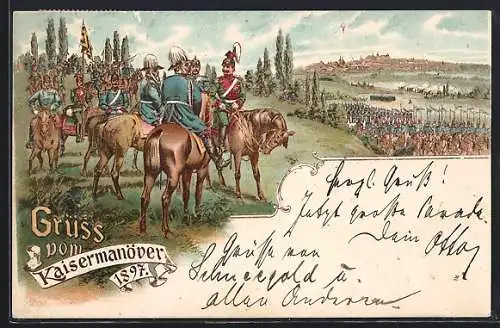 Grüss
vom
Kaisermanöver
1897.
Herzl. Gruß!
Jetzt große Parade.
Dein Otto
Grüße von
Schneegold u.
allen Anderen